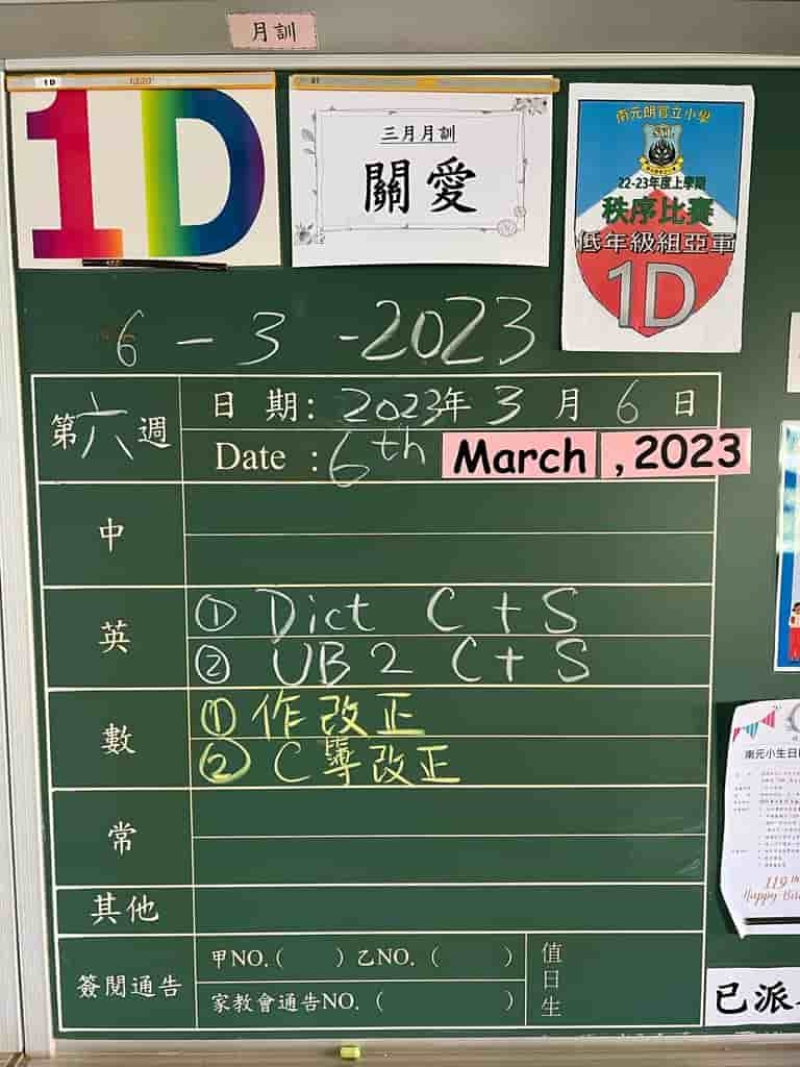 月訓
1D
三月月訓
關愛
南元朗官立小學
22-23年度上學期
秩序比賽
低年級組亞軍
1D
6-3-2023
第六週
日 期: 2023年 3 月 6 日
Date : 6th March , 2023
中
英
① Dict C + S
② UB 2 C + S
數
① 作改正
② C簿改正
常
其他
簽閱通告
甲NO.( ) 乙NO. ( )
家教會通告NO. ( )
值日生
南元小生日
119th
Happy Bi
已派